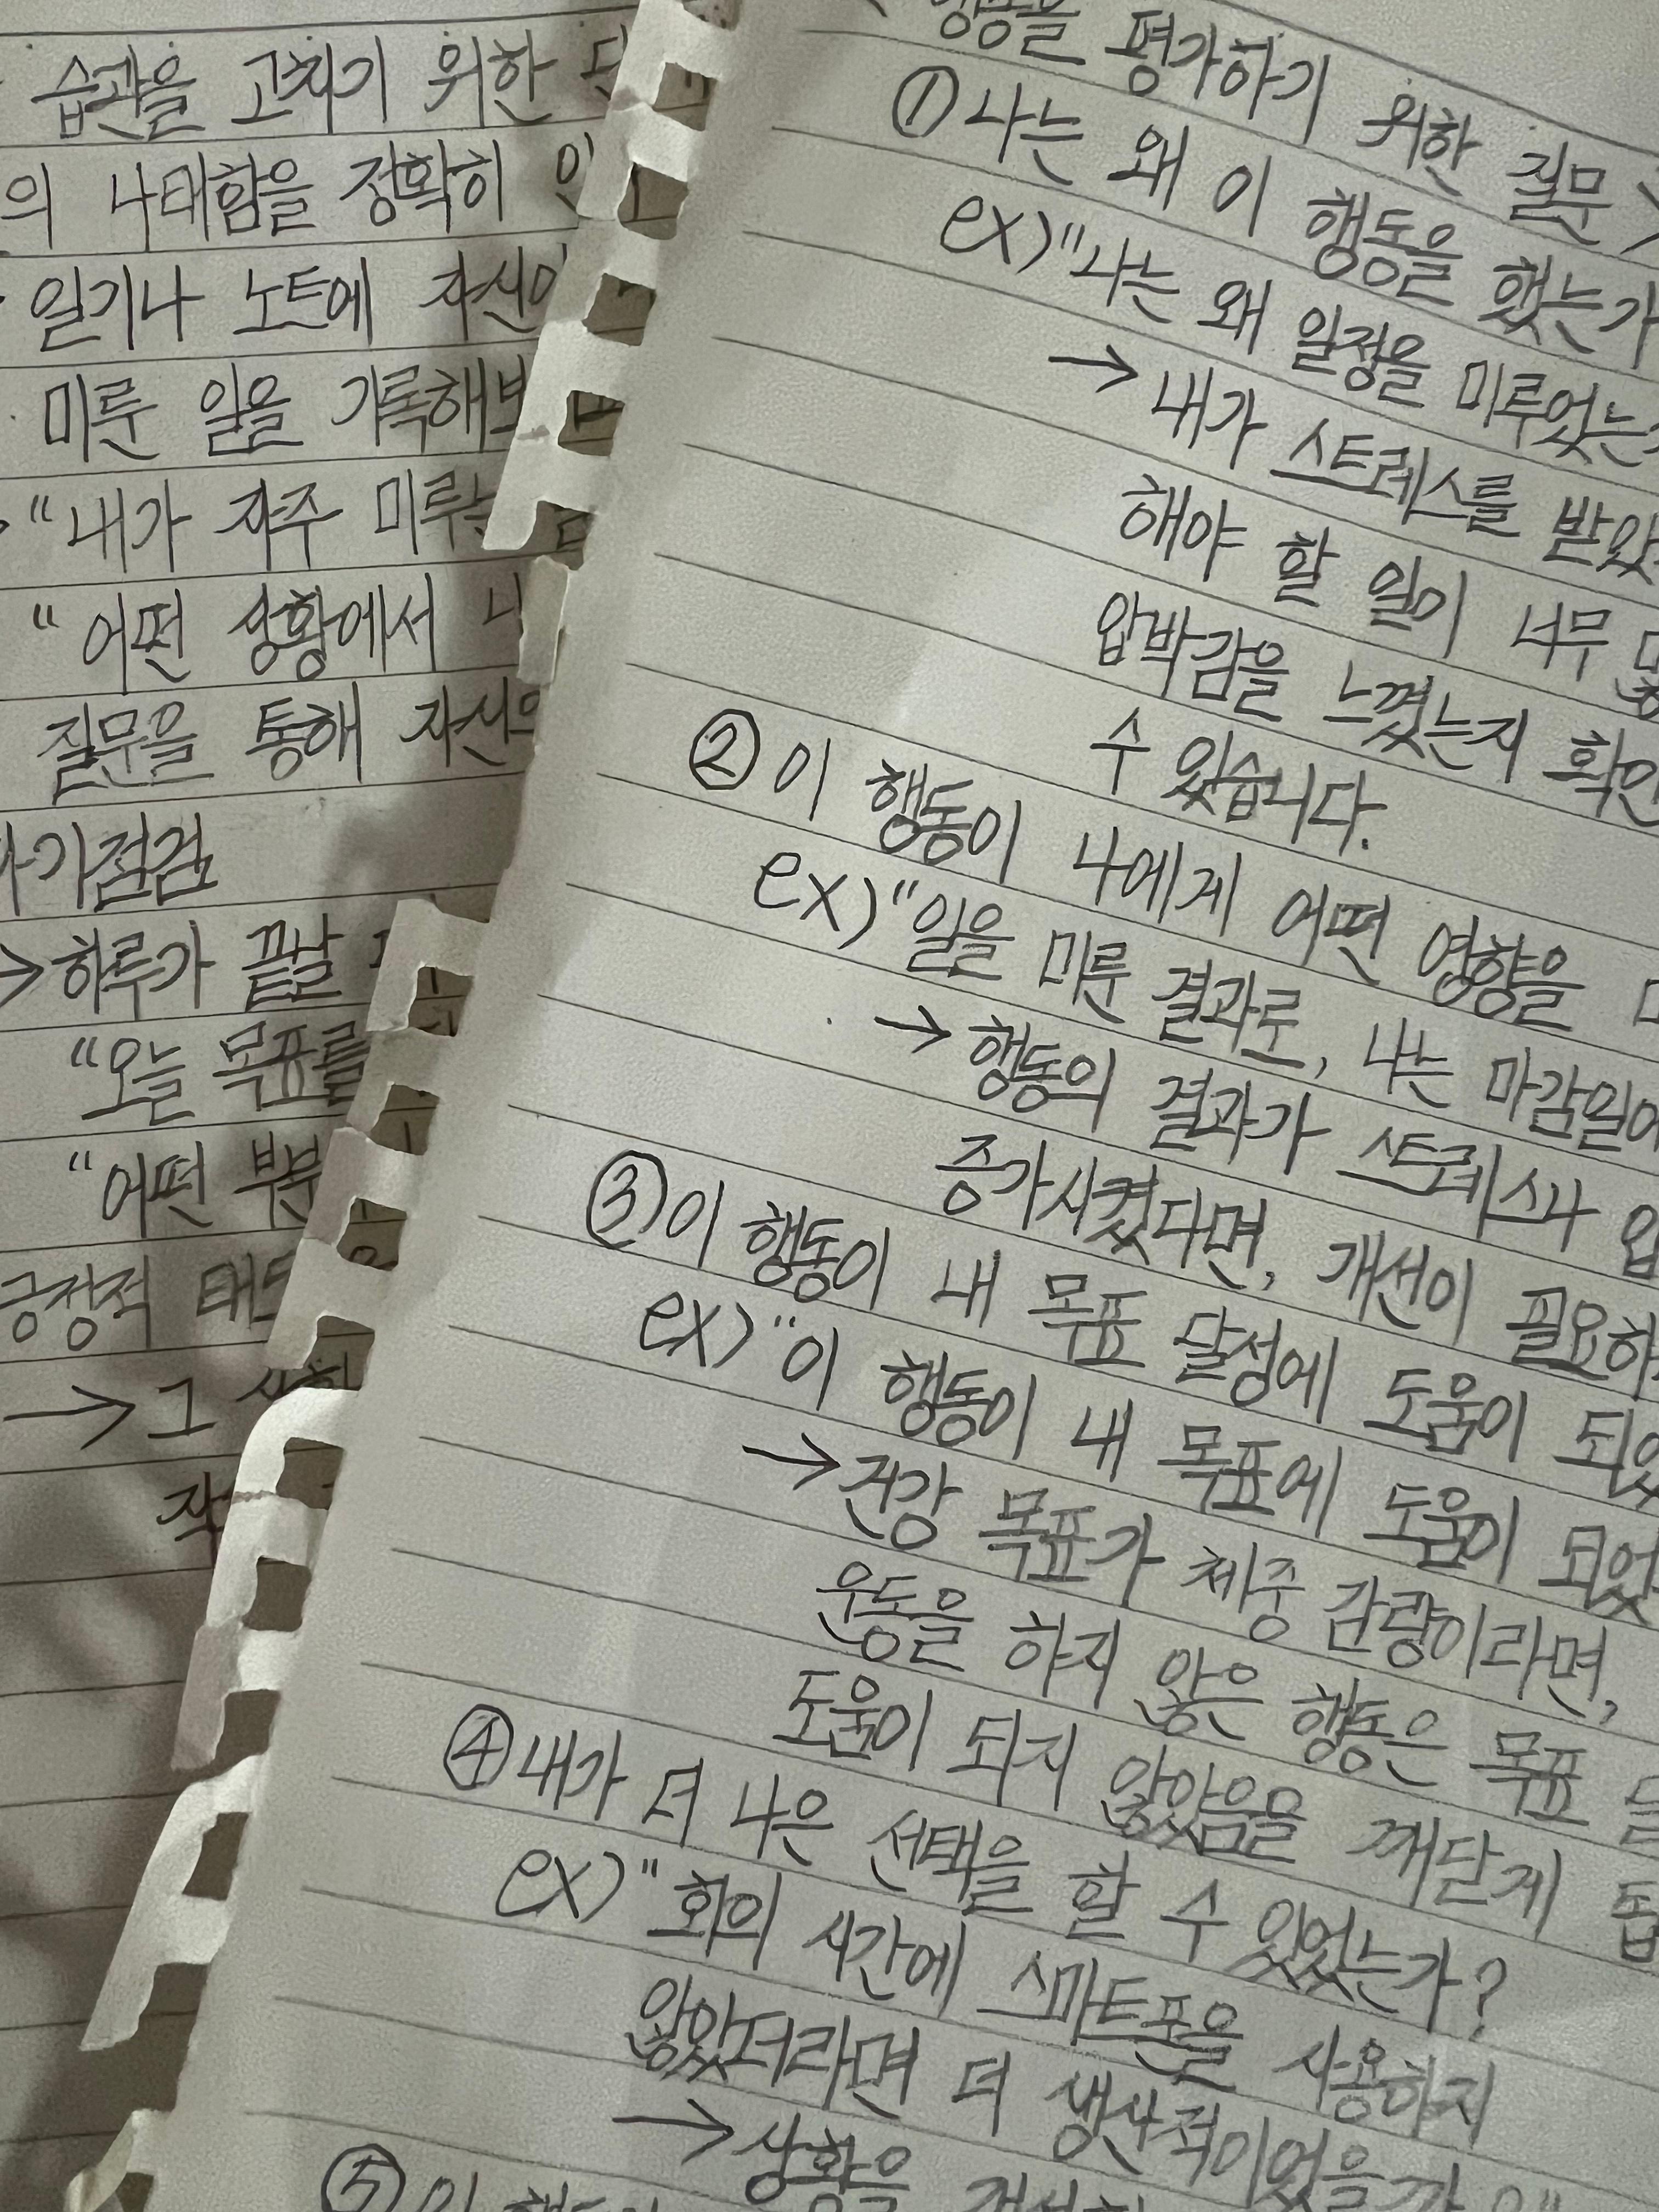 습관을 고치기 위한
의 나태함을 정확히
일기나 노트에
미룬 일을
"내가 자주 미루는
"어떤 상황에서
질문을 통해
자기점검
→하루가 끝날
"오늘 목표를
"어떤 부분
긍정적
→그
행동을 평가하기 위한 질문>
①나는 왜 이 행동을 했는가
ex)"나는 왜 일정을 미루었는가
→내가 스트레스를
해야 할 일이 너무
압박감을 느꼈는지
수 있습니다.
②이 행동이 나에게 어떤 영향을
ex)"일을 미룬 결과로, 나는
→행동의 결과가 스트레스나
증가시켰다면, 개선이
③이 행동이 내 목표 달성에 도움이
ex)"이 행동이 내 목표에 도움이
→건강 목표가 체중 감량이라면,
운동을 하지 않은 행동은 목표
도움이 되지 않았음을 깨닫게
④내가 더 나은 선택을 할 수 있었는가?
ex)"회의 시간에 스마트폰을 사용하지
않았더라면 더 생산적이었을까?"
→상황을
⑤이